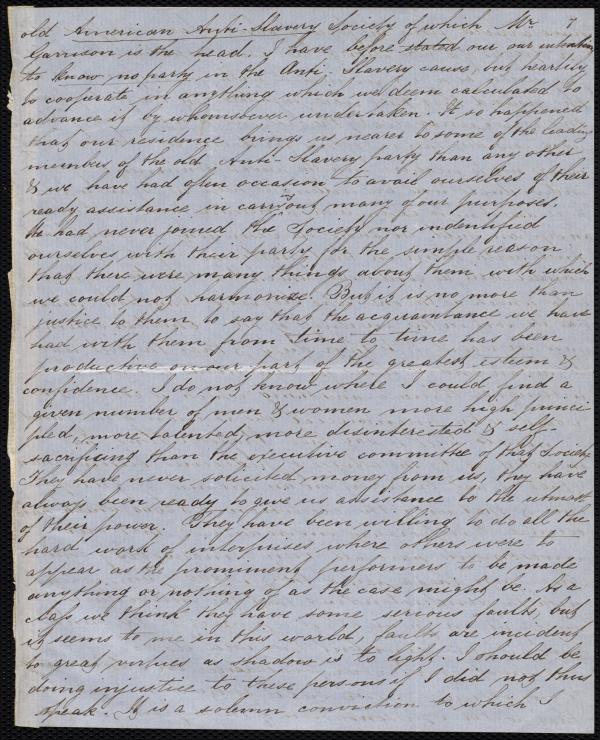 old American Anti-Slavery Society of which Mr 7
Garrison is the head. I have before stated our our intention
to know no party in the Anti-Slavery cause, but heartily
to cooperate in anything which we deem calculated to
advance it by whomsoever undertaken. It so happened
that our residence brings us nearer to some of the leading
members of the old Anti-Slavery party than any other
& we have had often occasion to avail ourselves of their
ready assistance in carrying out many of our purposes.
We had never joined the Society nor indentified
ourselves with their party for the simple reason
that there were many things about them with which
we could not harmonize. But it is no more than
justice to them to say that the acquaintance we have
had with them from time to time has been
productive on our part of the greatest esteem &
confidence. I do not know where I could find a
given number of men & women more high princi-
pled, more talented, more disinterested & self-
sacrificing than the executive committee of that Society
They have never solicited money from us, they have
always been ready to give us assistance to the utmost
of their power. They have been willing to do all the
hard work of interprises where others were to
appear as the prominent performers to be made
anything or nothing of as the case might be. As a
class we think they have some serious faults, but
it seems to me in this world, faults are incident
to great virtues as shadow is to light. I should be
doing injustice to these persons if I did not thus
speak. It is a solemn conviction to which I